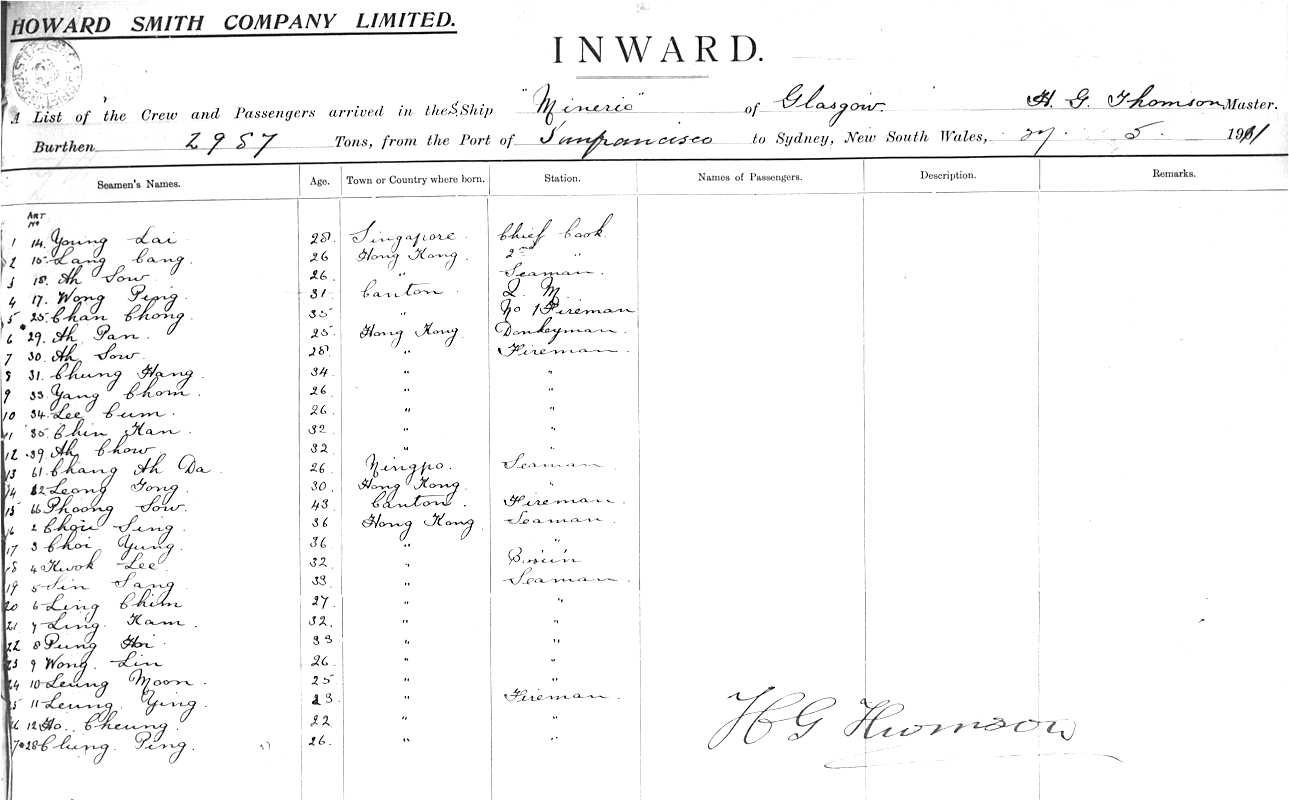 HOWARD SMITH COMPANY LIMITED.
INWARD.
A List of the Crew and Passengers arrived in the S. Ship "Mineric" of Glasgow H. G. Thomson, Master.
Burthen 2987 Tons, from the Port of Sanfrancisco to Sydney, New South Wales, 27. 5 1911
Seamen's Names. Age. Town or Country where born. Station. Names of Passengers. Description. Remarks.
Art No
1 14. Young Lai 28. Singapore. Chief Cook
2 15. Lang Cang. 26 Hong Kong. 2nd "
3 18. Ah Sow 26. " Seaman.
4 17. Wong Ping. 31. Canton Q. M.
5 25. Chan Chong. 35 " No 1 Fireman
6 29. Ah Pan. 25 Hong Kong Donkeyman.
7 30. Ah Sow. 28. " Fireman.
8 31. Chung Hang. 34. " "
9 33. Yang Chom. 26. " "
10 34. Lee Cum. 26. " "
11 35. Chin Kan. 32. " "
12 39 Ah Chow. 32. " "
13 61. Chang Ah Da 26. Ningpo. Seaman.
14 Leong Tong. 30. Hong Kong. "
15 66 Phoong Sow. 43 Canton. Fireman.
16 2 Choi Sing. 36 Hong Kong Seaman
17 3 Choi Yung. 36 " "
18 4 Kwok Lee. 32 "
19 5 Sin Sang. 33 " Seaman.
20 6 Ling Chim 27. " "
21 7 Ling. Kam. 32. " "
22 8 Pung Hoi 33 " "
23 9 Wong. Lin 26. " "
24 10 Leung Moon. 25 " "
25 11 Leung. Ying. 23. " Fireman.
26 12 Ho. Cheung. 22 " "
27 28 Chung Ping. 26. " "
H G Thomson